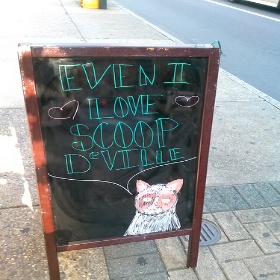 EVEN I
LOVE
SCOOP
DeVILLE